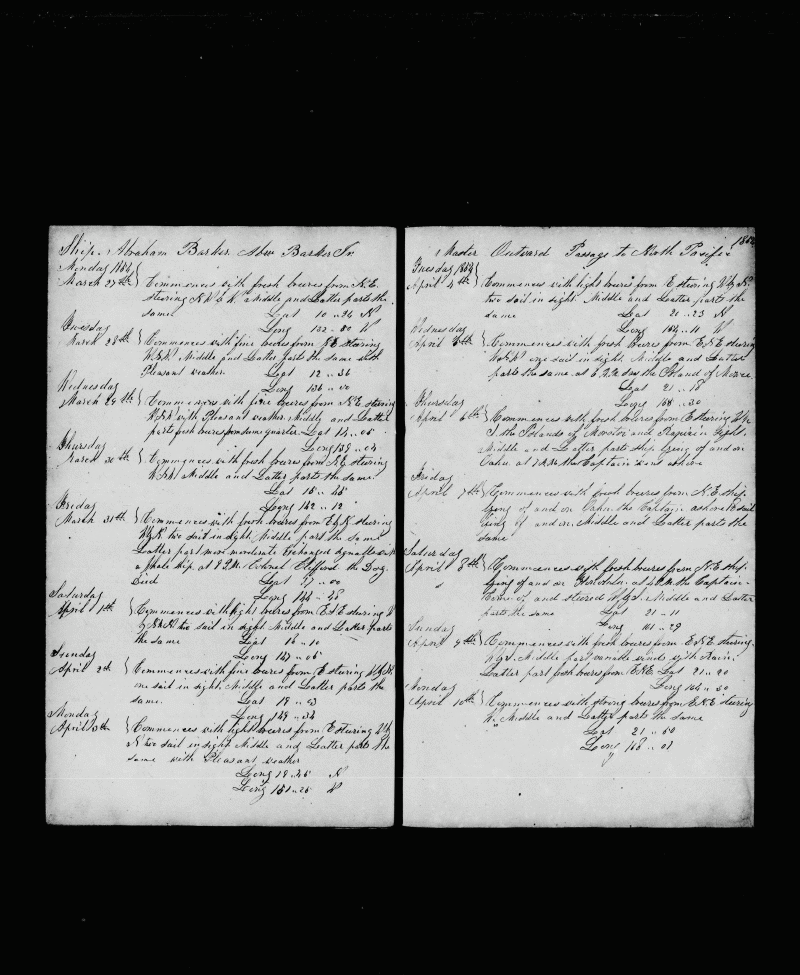 Ship Abraham Barker Abm Barker Jr
Monday 1854
March 27th Commences with fresh breezes from N.E.
steering N.W. & W. Middle and Latter parts the
same Lat 10 .. 26 N
Long 132 .. 00 W
Tuesday
March 28th Commences with fine breezes from N.E. steering
Middle and Latter parts the same with
Pleasant weather Lat 12 .. 36
Long 136 .. 00
Wednesday
March 29th Commences with fine breezes from N.E. steering
with Pleasant weather Middle and Latter
parts fresh breezes from same quarter. Lat 14 .. 06
Long 139 .. 04
Thursday
March 30th Commences with fresh breezes from N.E. steering
Middle and Latter parts the same.
Lat 15 .. 45
Long 142 .. 12
Friday
March 31th Commences with fresh breezes from steering
two sail in sight. Middle part the same
Latter part more moderate Exchanged signals with
a whale ship. at 8 P.M. Colonel Clifford the Dog.
Died Lat 17 .. 00
Long 144 .. 45
Saturday
April 1th Commences with light breezes from steering W
two sail in sight Middle and Latter parts
the same Lat 18 .. 10
Long 147 .. 06
Sunday
April 2th Commences with fine breezes from E steering
one sail in sight. Middle and Latter parts the
same. Lat 19 .. 03
Long 149 .. 34
Monday
April 3th Commences with light breezes from E steering W by
N two sail in sight Middle and Latter parts the
same with Pleasant weather
Long 19 .. 45 N
Long 151 .. 25 W
1854
Master Outward Passage to North Pacific
Tuesday 1854
April 4th Commences with light breezes from E steering W by N.
two sail in sight. Middle and Latter parts the
same Lat 20 .. 23 N
Long 154 .. 11 W
Wednesday
April 5th Commences with fresh breezes from E.N.E. steering
one sail in sight. Middle and Latter
parts the same. at saw the Island of
Lat 21 .. 18
Long 158 .. 30
Thursday
April 6th Commences with fresh breezes from E steering
the Islands of and in sight.
Middle and Latter parts ship lying of and on
Oahu. at the Captain went ashore
Friday
April 7th Commences with fresh breezes from N.E. ship
lying of and on Oahu. the Captain ashore
lying of and on Middle and Latter parts the
same
Saturday
April 8th Commences with fresh breezes from N.E. ship.
lying of and on Honolulu. at 4 P.M. the Captain
came of and steered Middle and Latter
parts the same Lat 21 .. 11
Long 161 .. 29
Sunday
April 9th Commences with fresh breezes from E.N.E. steering.
Middle part variable winds with Rain.
Latter part fresh breezes from E.N.E. Lat 21 .. 20
Long 164 .. 50
Monday
April 10th Commences with strong breezes from E.N.E. steering
W. Middle and Latter parts the same
Lat 21 .. 50
Long 168 .. 01